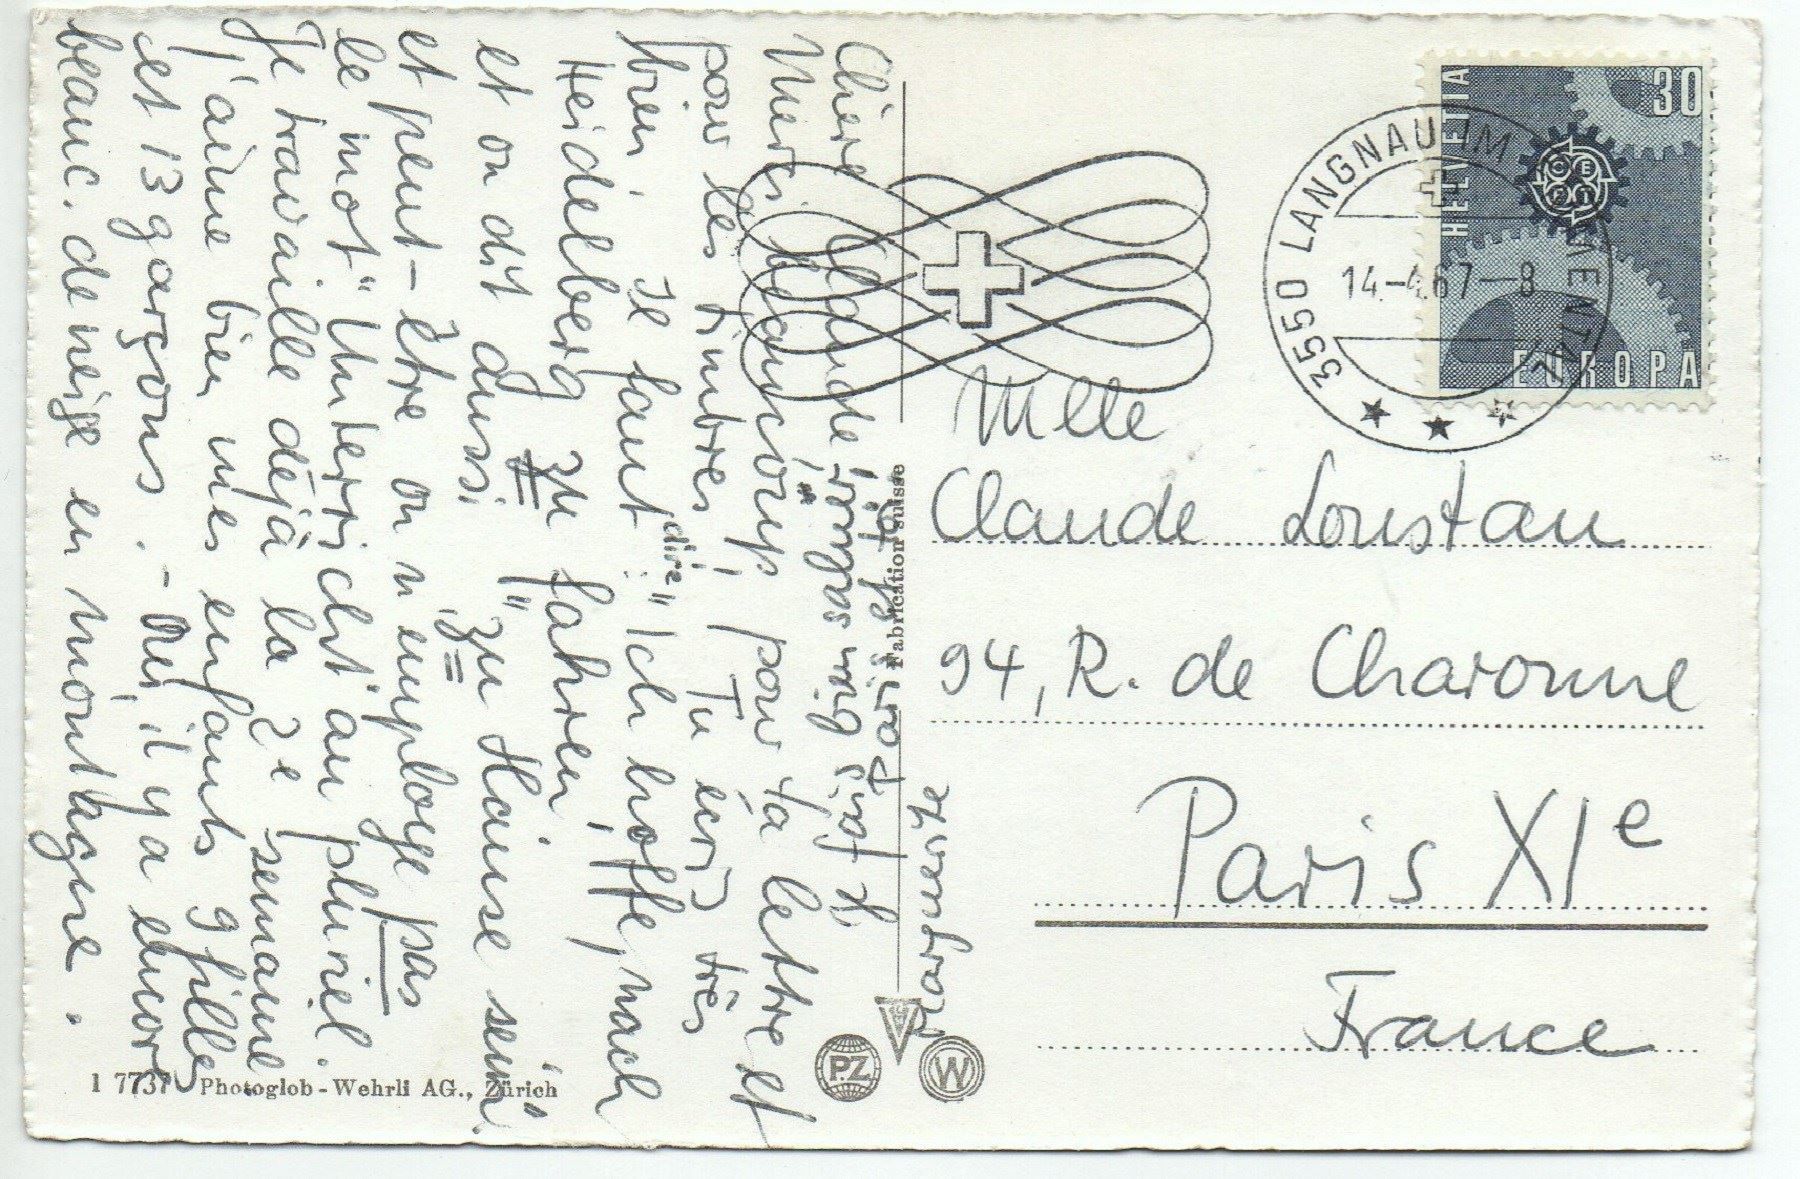 Chère Claude,
Merci beaucoup pour ta lettre et
pour les timbres! Tu écris très
bien. Il faut dire: "Ich hoffe, nach
Heidelberg zu fahren,"
et on dit aussi "zu Hause sein"
et peut-être on n'emploie pas
le mot "Unterricht" au pluriel.
Je travaille déjà la 2e semaine
J'aime bien mes enfants 9 filles
et 13 garçons. - Oui, il y a encore
beauc. de neige en montagne.
Paris
Marguerite
Fabrication suisse
1 7737 Photoglob-Wehrli AG., Zürich
P.Z.
W
HELVETIA
30
CEPT
EUROPA
3550 LANGNAU IM EMMENTAL
14.-4.67-8
Mlle
Claude Loustau
94, R. de Charonne
Paris XIe
France